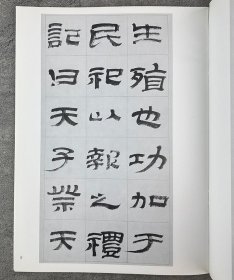 生殖也功加于
民祀以報之禮
記曰天子祭天